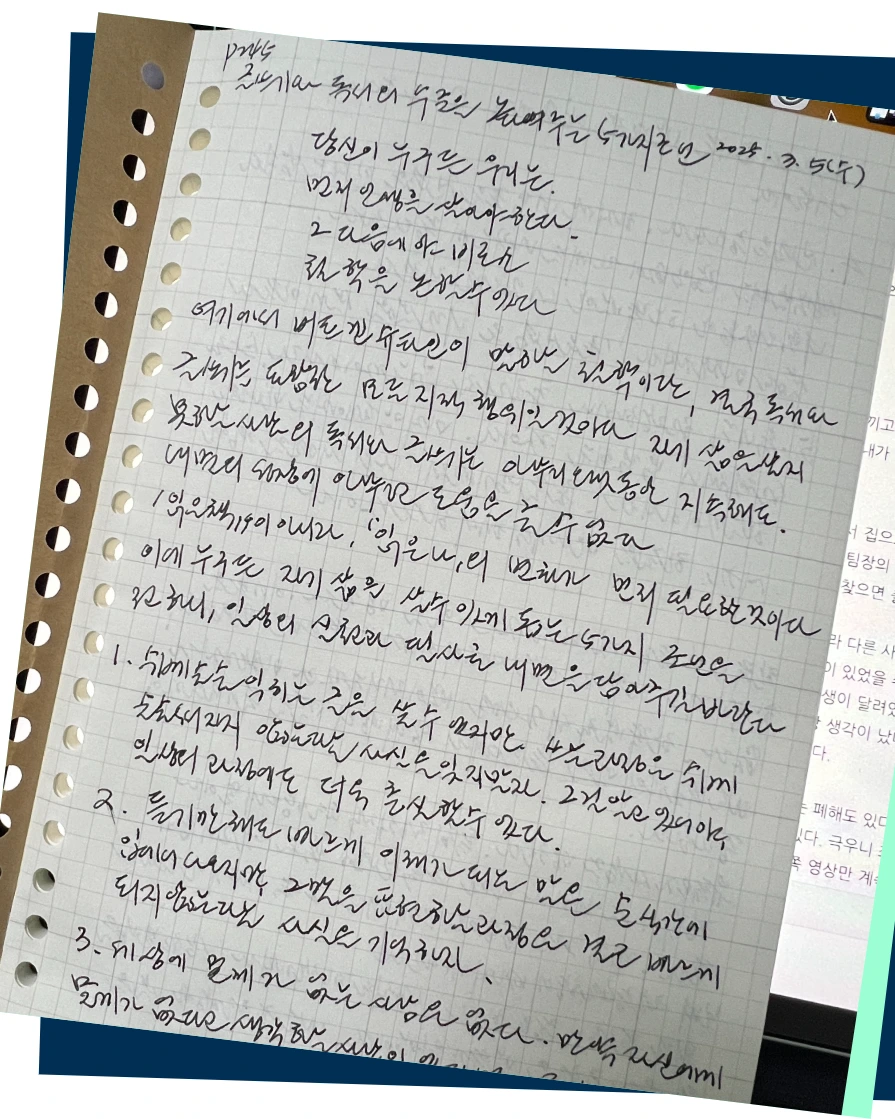 p245
글쓰기와 독서의 수준을 높여주는 5가지조언 2025. 3. 5(수)
당신이 누구든 우리는.
먼저 인생을 살아야한다.
그 다음에야 비로소
철학을 논할 수 있다
여기에서 비트겐슈타인이 말하는 철학이란, 결국 독서와
글쓰기를 포함한 모든 지적 행위일 것이다 자기 삶을 살지
못하는 사람의 독서와 글쓰기는 아무리 오랫동안 지속해도.
내면의 성장에 아무런 도움을 줄 수 없다
'읽은 책'이 아니라, '읽은 나'의 변화가 먼저 필요한 것이다
이에 누구든 자기 삶을 살 수 있게 돕는 5가지 조언을
전하니, 일상의 실천과 필사로 내면을 담아주길 바란다
1. 쉽게 술술 읽히는 글을 쓸 수 있지만. 쓰는 과정은 쉽게
술술 써지지 않는다는 사실을 잊지말자. 그걸 알고 있어야
일상의 과정에도 더욱 충실할 수 있다.
2. 듣기만 해도 빠르게 이해가 되는 말은 순식간에
입에서 나오지만, 그 말을 표현하는 과정은 결코 빠르게
되지 않는다는 사실을 기억하자.
3. 세상에 문제가 없는 사람은 없다. 만약 자신에게
문제가 없다고 생각하는 사람이
끼고
내가
서 집으
팀장의
찾으면
라 다른 사
이 있었을
생이 달려있
생각이 났
다.
는 폐해도 있다
있다. 극우니
쪽 영상만 계속